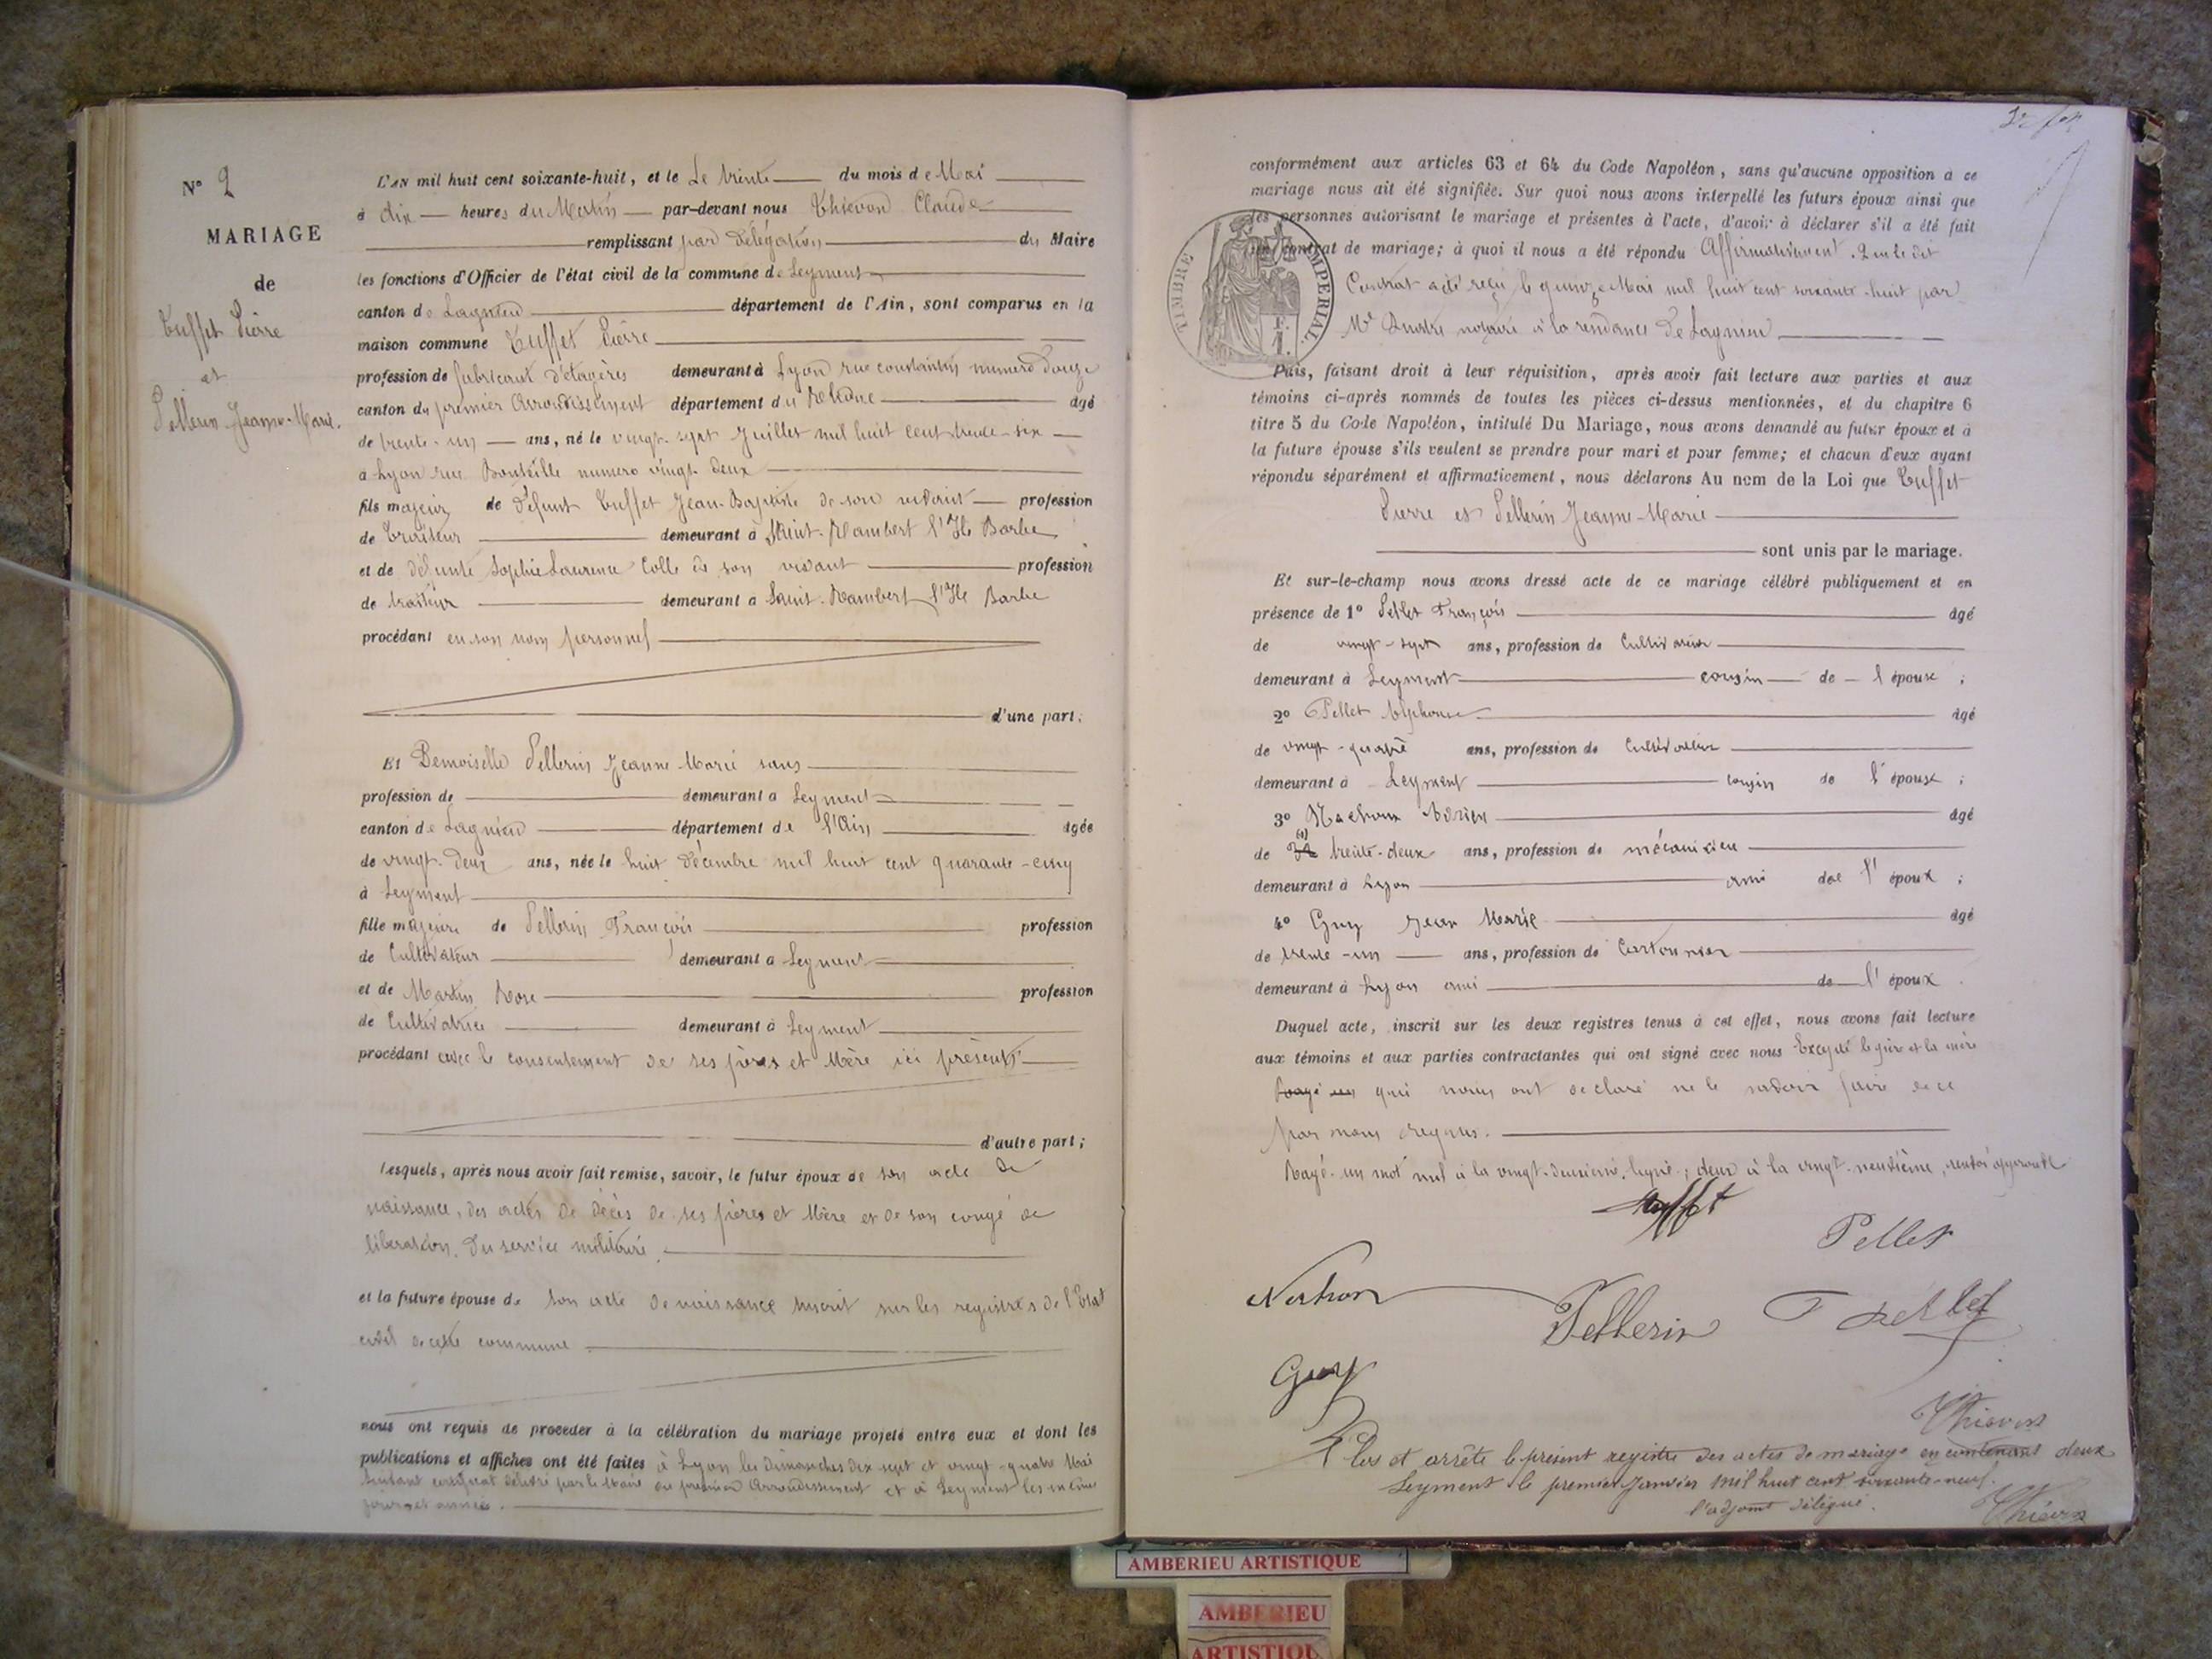 N° 2
MARIAGE
de
Tuffet Pierre
et
Pellerin Jeanne-Marie.
L'AN mil huit cent soixante-huit, et le Le trente du mois de Mai
à dix heures du Matin par-devant nous Thiévon Claude
remplissant par délégation du Maire
les fonctions d'Officier de l'état civil de la commune de Leyment
canton de Lagnieu département de l'Ain, sont comparus en la
maison commune Tuffet Pierre
profession de fabricant d'étagères demeurant à Lyon rue constantin numero douze
canton du premier Arrondissement département du Rhône âgé
de trente-un ans, né le vingt-sept Juillet mil huit cent trente-six
à Lyon rue Bouteille numero vingt-deux
fils majeur de défunt Tuffet Jean-Baptiste de son vivant profession
de Traiteur demeurant à Saint-Rambert l'Ile Barbe
et de défunte Sophie Laurence Colle de son vivant profession
de traiteur demeurant à Saint-Rambert l'Ile Barbe
procédant en son nom personnel
d'une part;
Et Demoiselle Pellerin Jeanne-Marie sans
profession de demeurant à Leyment
canton de Lagnieu département de l'Ain âgée
de vingt-deux ans, née le huit décembre mil huit cent quarante-cinq
à Leyment
fille majeure de Pellerin François profession
de Cultivateur demeurant à Leyment
et de Martin Rose profession
de Cultivatrice demeurant à Leyment
procédant avec le consentement de ses pères et Mère ici présents
d'autre part;
Lesquels, après nous avoir fait remise, savoir, le futur époux de son acte de
naissance, des actes de décès de ses pères et Mère et de son congé de
libération du service militaire
et la future épouse de son acte de naissance inscrit sur les registres de l'Etat
civil de cette commune
nous ont requis de procéder à la célébration du mariage projeté entre eux et dont les
publications et affiches ont été faites à Lyon les dimanches dix-sept et vingt-quatre Mai
suivant certificat délivré par le Maire du premier Arrondissement et à Leyment les mêmes
jours et année.
conformément aux articles 63 et 64 du Code Napoléon, sans qu'aucune opposition à ce
mariage nous ait été signifiée. Sur quoi nous avons interpellé les futurs époux ainsi que
les personnes autorisant le mariage et présentes à l'acte, d'avoir à déclarer s'il a été fait
un contrat de mariage; à quoi il nous a été répondu Affirmativement. Que le dit
Contrat a été reçu le quinze Mai mil huit cent soixante-huit par
Me notaire à la résidance de Lagnieu
TIMBRE IMPERIAL
F.
1.
Puis, faisant droit à leur réquisition, après avoir fait lecture aux parties et aux
témoins ci-après nommés de toutes les pièces ci-dessus mentionnées, et du chapitre 6
titre 5 du Code Napoléon, intitulé Du Mariage, nous avons demandé au futur époux et à
la future épouse s'ils veulent se prendre pour mari et pour femme; et chacun d'eux ayant
répondu séparément et affirmativement, nous déclarons Au nom de la Loi que Tuffet
Pierre et Pellerin Jeanne-Marie
sont unis par le mariage.
Et sur-le-champ nous avons dressé acte de ce mariage célébré publiquement et en
présence de 1° Pellet François âgé
de vingt-sept ans, profession de Cultivateur
demeurant à Leyment cousin de l'épouse;
2° Pellet Alphonse âgé
de vingt-quatre ans, profession de Cultivateur
demeurant à Leyment cousin de l'épouse;
3° Adrien âgé
de trente-deux ans, profession de mécanicien
demeurant à Lyon ami de l'époux;
4° Guy Jean Marie âgé
de trente-un ans, profession de Cartonnier
demeurant à Lyon ami de l'époux.
Duquel acte, inscrit sur les deux registres tenus à cet effet, nous avons fait lecture
aux témoins et aux parties contractantes qui ont signé avec nous Excepté le père et la mère
qui nous ont déclaré ne le savoir faire de ce
par nous requis.
Rayé un mot nul à la vingt-deuxième ligne; deux à la vingt-neuvième, renvoi approuvé
Tuffet
Pellet
Pellerin
F Pellet
Guy
Thiévon
Clos et arrêté le présent registre des actes de mariage en contenant deux
Leyment le premier Janvier mil huit cent soixante-neuf.
l'adjoint délégué.
Thiévon
AMBERIEU ARTISTIQUE
AMBERIEU
ARTISTIQU